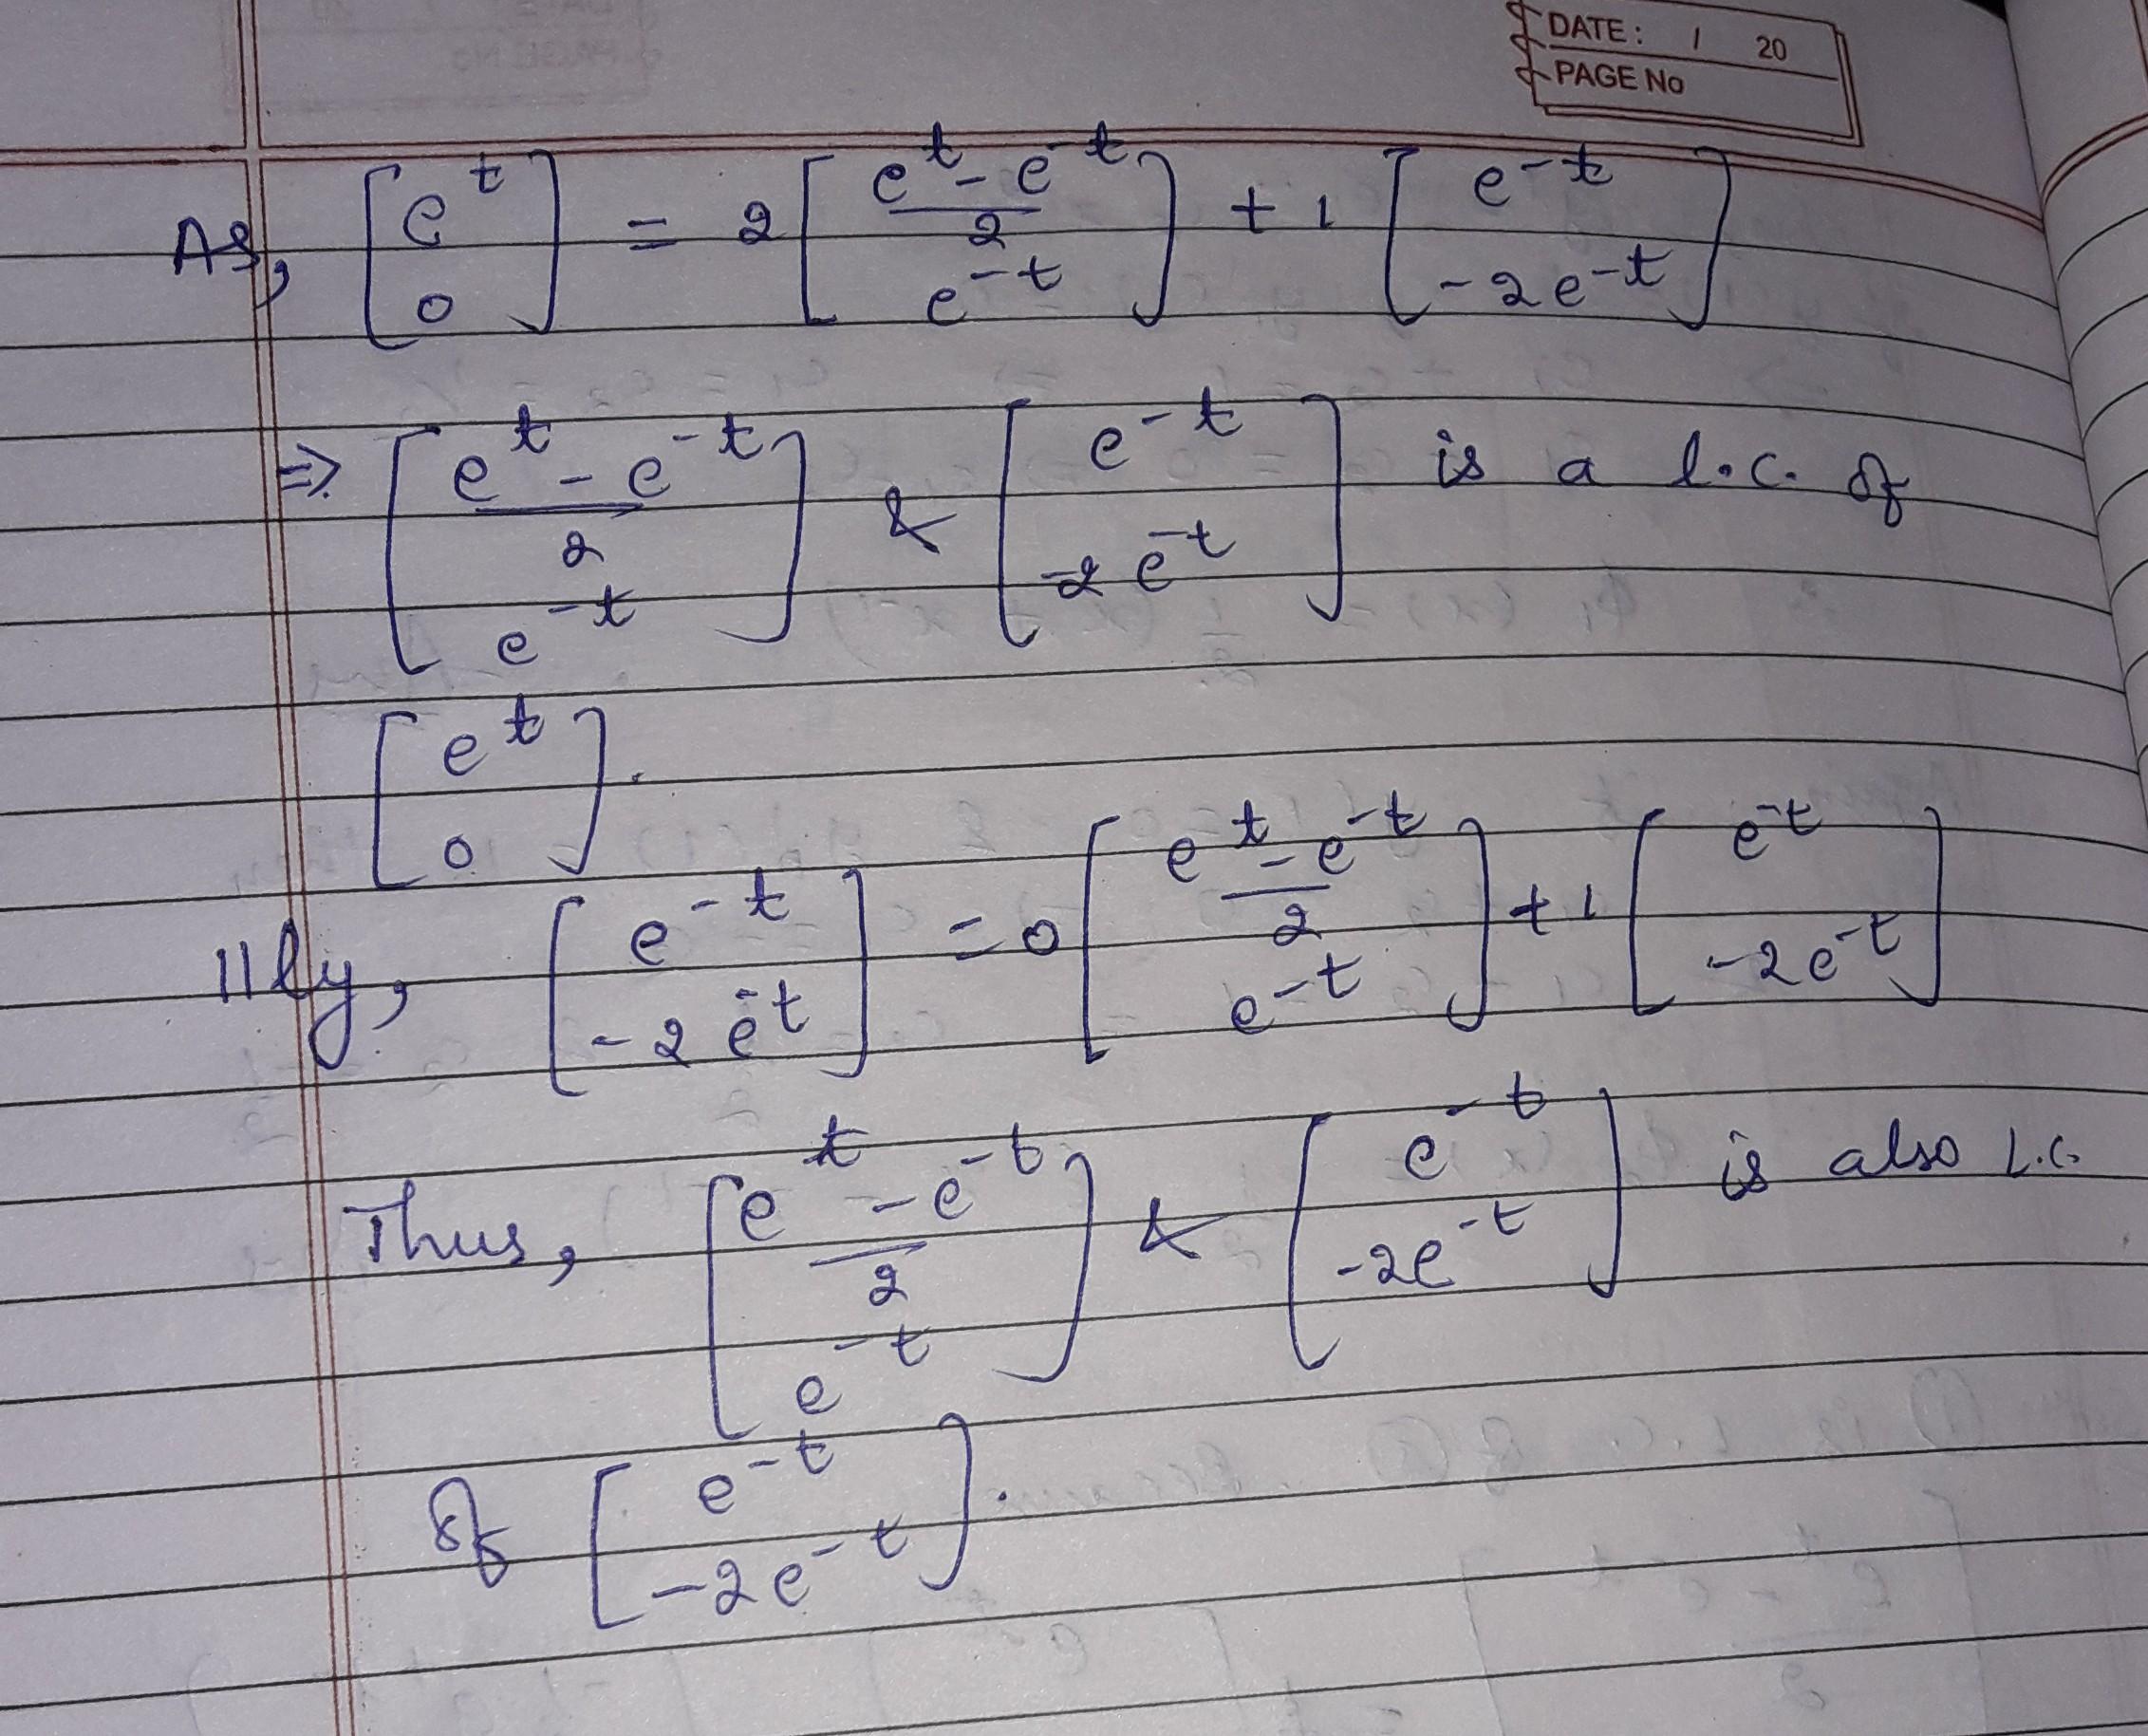 DATE: / 20
PAGE No
As, [e^t ; 0] = 2 [(e^t - e^-t)/2 ; e^-t] + 1 [e^-t ; -2e^-t]
=> [(e^t - e^-t)/2 ; e^-t] & [e^-t ; -2e^-t] is a l.c. of
[e^t ; 0].
||ly, [e^-t ; -2e^-t] = 0 [(e^t - e^-t)/2 ; e^-t] + 1 [e^-t ; -2e^-t]
Thus, [(e^t - e^-t)/2 ; e^-t] & [e^-t ; -2e^-t] is also L.C.
of [e^-t ; -2e^-t].